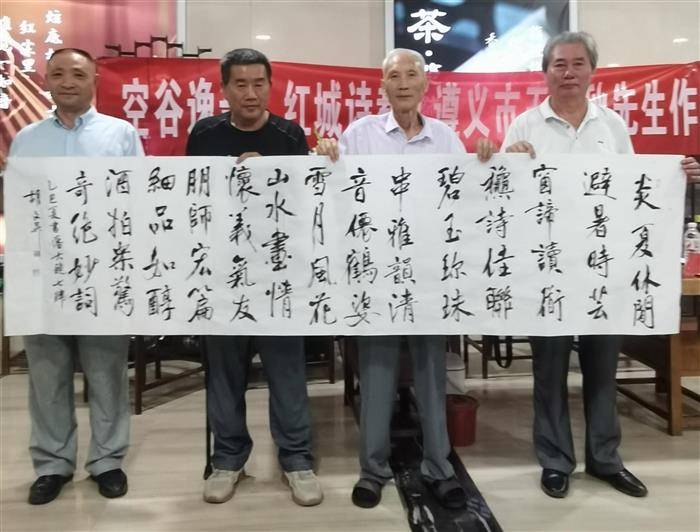 茶·
空谷逸 红城诗 遵义市 先生作
炎夏休閒
避暑時芸
窗諦讀衛
穠詩佳聯
碧玉珎珠
串雅韻清
音僊鶴姿
雪月風花
山水畫情
懷義氣友
朋師宏篇
細品如醇
酒拍案驚
奇绝妙詞
乙巳夏書潘大 七律